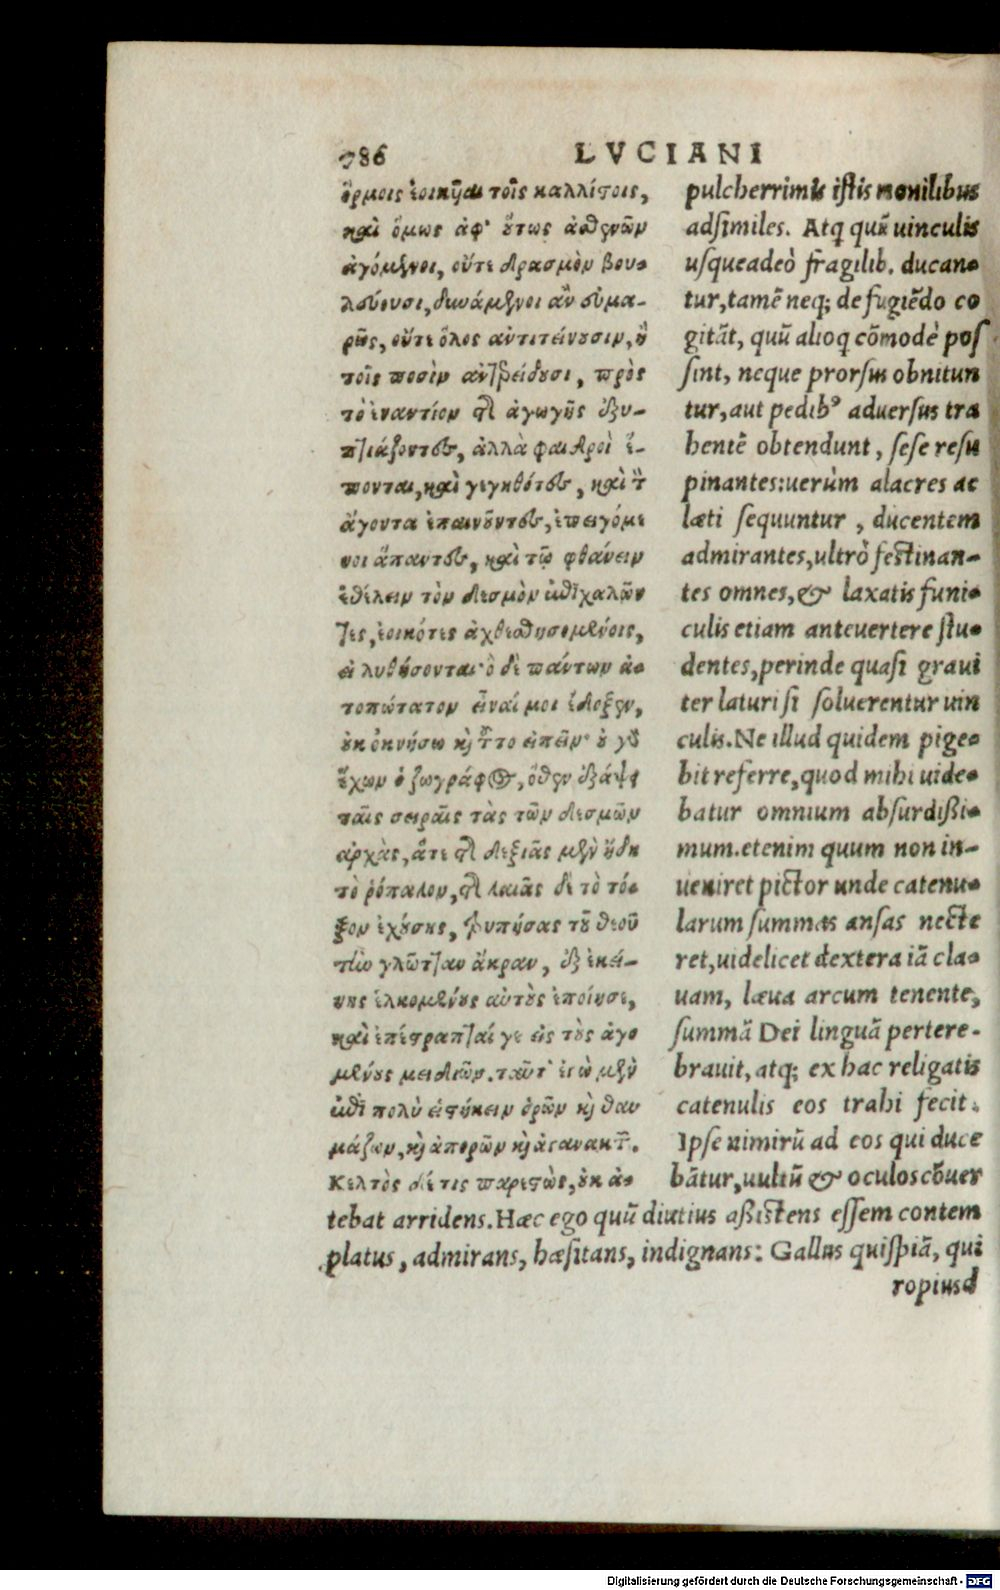 786 LVCIANI
ὅρμοις ἐοικῆαι τοῖς καλλίστοις,
καὶ ὅμως ἀφ' οὕτως ἀσθενῶν
ἀγόμενοι, οὔτε δρασμὸν βου-
λεύουσι, δυνάμενοι ἂν εὐμα-
ρῶς, οὔτε ὅλως ἀντιτείνουσιν, ἢ
τοῖς ποσὶν ἀντερείδουσι, πρὸς
τὸ ἐναντίον τῆς ἀγωγῆς ἐξυ-
πτιάζοντες, ἀλλὰ φαιδροὶ ἕ-
πονται, καὶ γεγηθότες, καὶ τὸν
ἄγοντα ἐπαινοῦντες, ἐπειγόμε
νοι ἅπαντες, καὶ τῷ φθάνειν
ἐθέλειν τὸν δεσμὸν ἐπιχαλῶν
τες, ἐοικότες ἀχθεσθησομένοις,
εἰ λυθήσονται· ὃ δὲ πάντων ἀ-
τοπώτατον εἶναί μοι ἔδοξεν,
οὐκ ὀκνήσω καὶ τοῦτο εἰπεῖν· οὐ γὰρ
ἔχων ὁ ζωγράφος, ὅθεν ἐξάψει
ταῖς σειραῖς τὰς τῶν δεσμῶν
ἀρχὰς, ἅτε τῆς δεξιᾶς μὲν ἤδη
τὸ ῥόπαλον, τῆς λαιᾶς δὲ τὸ τό-
ξον ἐχούσης, τρυπήσας τοῦ θεοῦ
τὴν γλῶτταν ἄκραν, ἐξ ἐκεί-
νης ἑλκομένους αὐτοὺς ἐποίησε,
καὶ ἐπέστραπταί γε εἰς τοὺς ἀγο
μένους μειδιῶν. ταῦτ' ἐγὼ μὲν
ἐπὶ πολὺ εἱστήκειν ὁρῶν καὶ θαυ
μάζων, καὶ ἀπορῶν καὶ ἀγανακτῶν.
Κελτὸς δέ τις παρεστὼς, οὐκ ἀ-
pulcherrimis istis monilibus
adsimiles. Atq quũ uinculis
usqueadeò fragilib. ducan-
tur, tamẽ neq; de fugiẽdo co
gitãt, quũ alioq cõmodè pos
sint, neque prorsus obnitun
tur, aut pedibꝰ aduersus tra
hentẽ obtendunt, sese resu
pinantes: uerùm alacres ac
læti sequuntur, ducentem
admirantes, ultrò festinan-
tes omnes, & laxatis funi-
culis etiam anteuertere stu-
dentes, perinde quasi graui
ter laturi si soluerentur uin
culis. Ne illud quidem pige-
bit referre, quod mihi uide-
batur omnium absurdißi-
mum. etenim quum non in-
ueniret pictor unde catenu-
larum summas ansas necte
ret, uidelicet dextera iã cla-
uam, læua arcum tenente,
summã Dei linguã pertere-
brauit, atq; ex hac religatis
catenulis eos trahi fecit.
Ipse nimirũ ad eos qui duce
bãtur, uultũ & oculos cõuer
tebat arridens. Hæc ego quũ diutius aßistens essem contem
platus, admirans, hæsitans, indignans: Gallus quispiã, qui
ropiusd
Digitalisierung gefördert durch die Deutsche Forschungsgemeinschaft - DFG